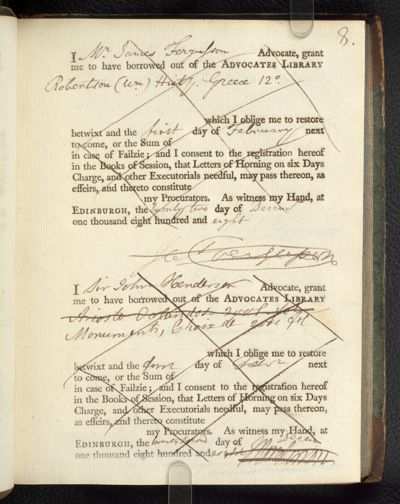 8.
I Mr. James Fergusson Advocate, grant
me to have borrowed out of the ADVOCATES LIBRARY
Robertson (Wm) Hist. Greece 12o.
which I oblige me to restore
betwixt and the first day of February next
to come, or the Sum of
in case of Failzie; and I consent to the registration hereof
in the Books of Session, that Letters of Horning on six Days
Charge, and other Executorials needful, may pass thereon, as
effeirs, and thereto constitute
my Procurators. As witness my Hand, at
EDINBURGH, the twenty two day of
one thousand eight hundred and eight
I Sir John Henderson Advocate, grant
me to have borrowed out of the ADVOCATES LIBRARY
Monuments, Choix de
which I oblige me to restore
betwixt and the day of next
to come, or the Sum of
in case of Failzie; and I consent to the registration hereof
in the Books of Session, that Letters of Horning on six Days
Charge, and other Executorials needful, may pass thereon,
as effeirs, and thereto constitute
my Procurators. As witness my Hand, at
EDINBURGH, the day of
one thousand eight hundred and